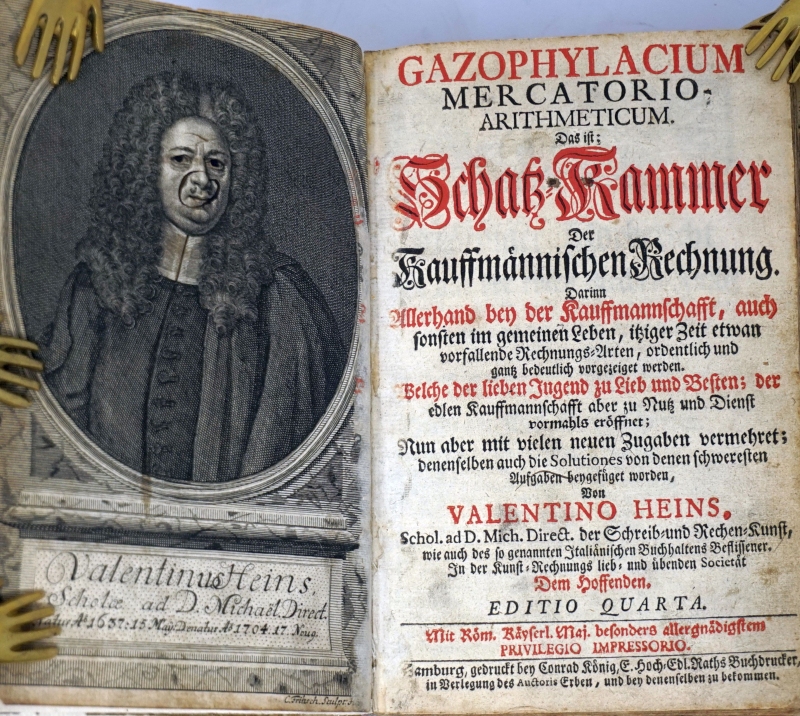 Valentinus Heins
Scholæ ad D. Michaël. Direct.
Natus Aº 1637. 15 Maÿ. Denatus Aº 1704. 17. Novg.
C. Fritsch. Sculps.
GAZOPHYLACIUM
MERCATORIO-
ARITHMETICUM.
Das ist;
Schatz-Kammer
Der
Kauffmännischen Rechnung.
Darinn
Allerhand bey der Kauffmannschafft, auch
sonsten im gemeinen Leben, itziger Zeit etwan
vorfallende Rechnungs-Arten, ordentlich und
gantz bedeutlich vorgezeiget werden.
Welche der lieben Jugend zu Lieb und Besten; der
edlen Kauffmannschafft aber zu Nutz und Dienst
vormahls eröffnet;
Nun aber mit vielen neuen Zugaben vermehret;
denenselben auch die Solutiones von denen schweresten
Aufgaben beygefüget worden,
Von
VALENTINO HEINS.
Schol. ad D. Mich. Direct. der Schreib-und Rechen-Kunst,
wie auch des so genannten Italiänischen Buchhaltens Beflissener.
In der Kunst-Rechnungs lieb- und übenden Societät
Dem Hoffenden.
EDITIO QUARTA.
Mit Röm. Käyserl. Maj. besonders allergnädigstem
PRIVILEGIO IMPRESSORIO.
Hamburg, gedruckt bey Conrad König, E. Hoch-Edl. Raths Buchdrucker,
in Verlegung des Auctoris Erben, und bey denenselben zu bekommen.